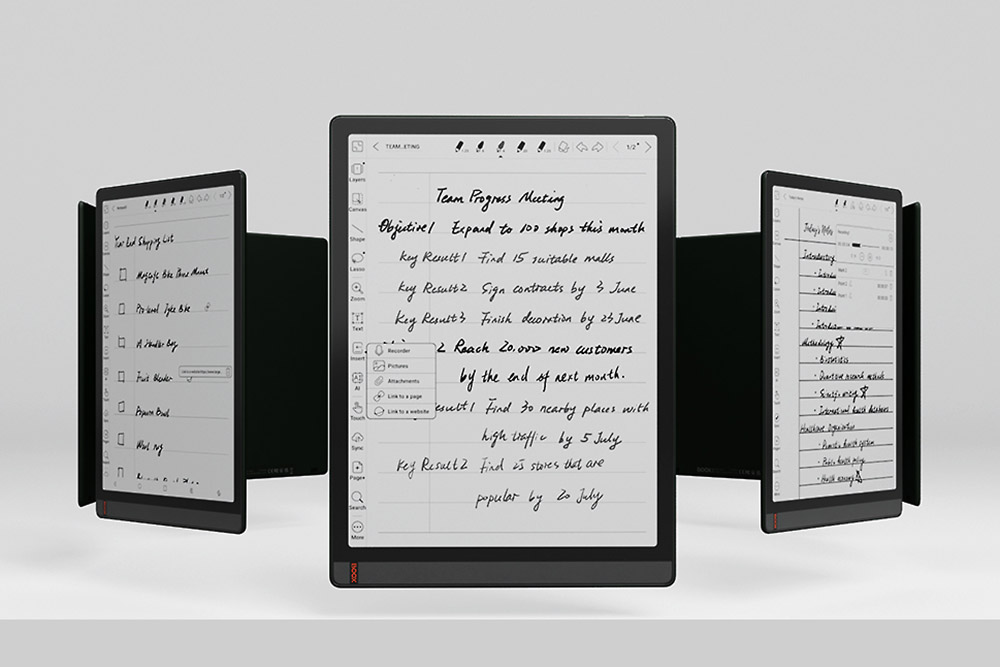 Year End Shopping List
MagSafe Bike Phone Mount
Personal
Bike
A
Bag
Fruit Blender
Popcorn Bowl
Wool rug
TEAM...EETING
1/2
Layers
Canvas
Shape
Lasso
Zoom
Text
Insert
AI
Touch
Sync
Page+
Search
More
Team Progress Meeting
Objective1 Expand to 100 shops this month
Key Result1 Find 15 suitable malls
Key Result2 Sign contracts by 3 June
Key Result3 Finish decoration by 25 June
2 Reach 20,000 new customers
by the end of next month.
esult1 Find 30 nearby places with
high traffic by 5 July
Key Result2 Find 25 stores that are
popular by 20 July
Recorder
Pictures
Attachments
Link to a page
Link to a website
BOOX
Today's Notes
Introductory
Introduc
Introduc
Introduc
Methodology
Biostatistics
Quantitative research methods
Scientific writing
International health databases
Healthcare Organisation
health system
Public health policy
Health economy